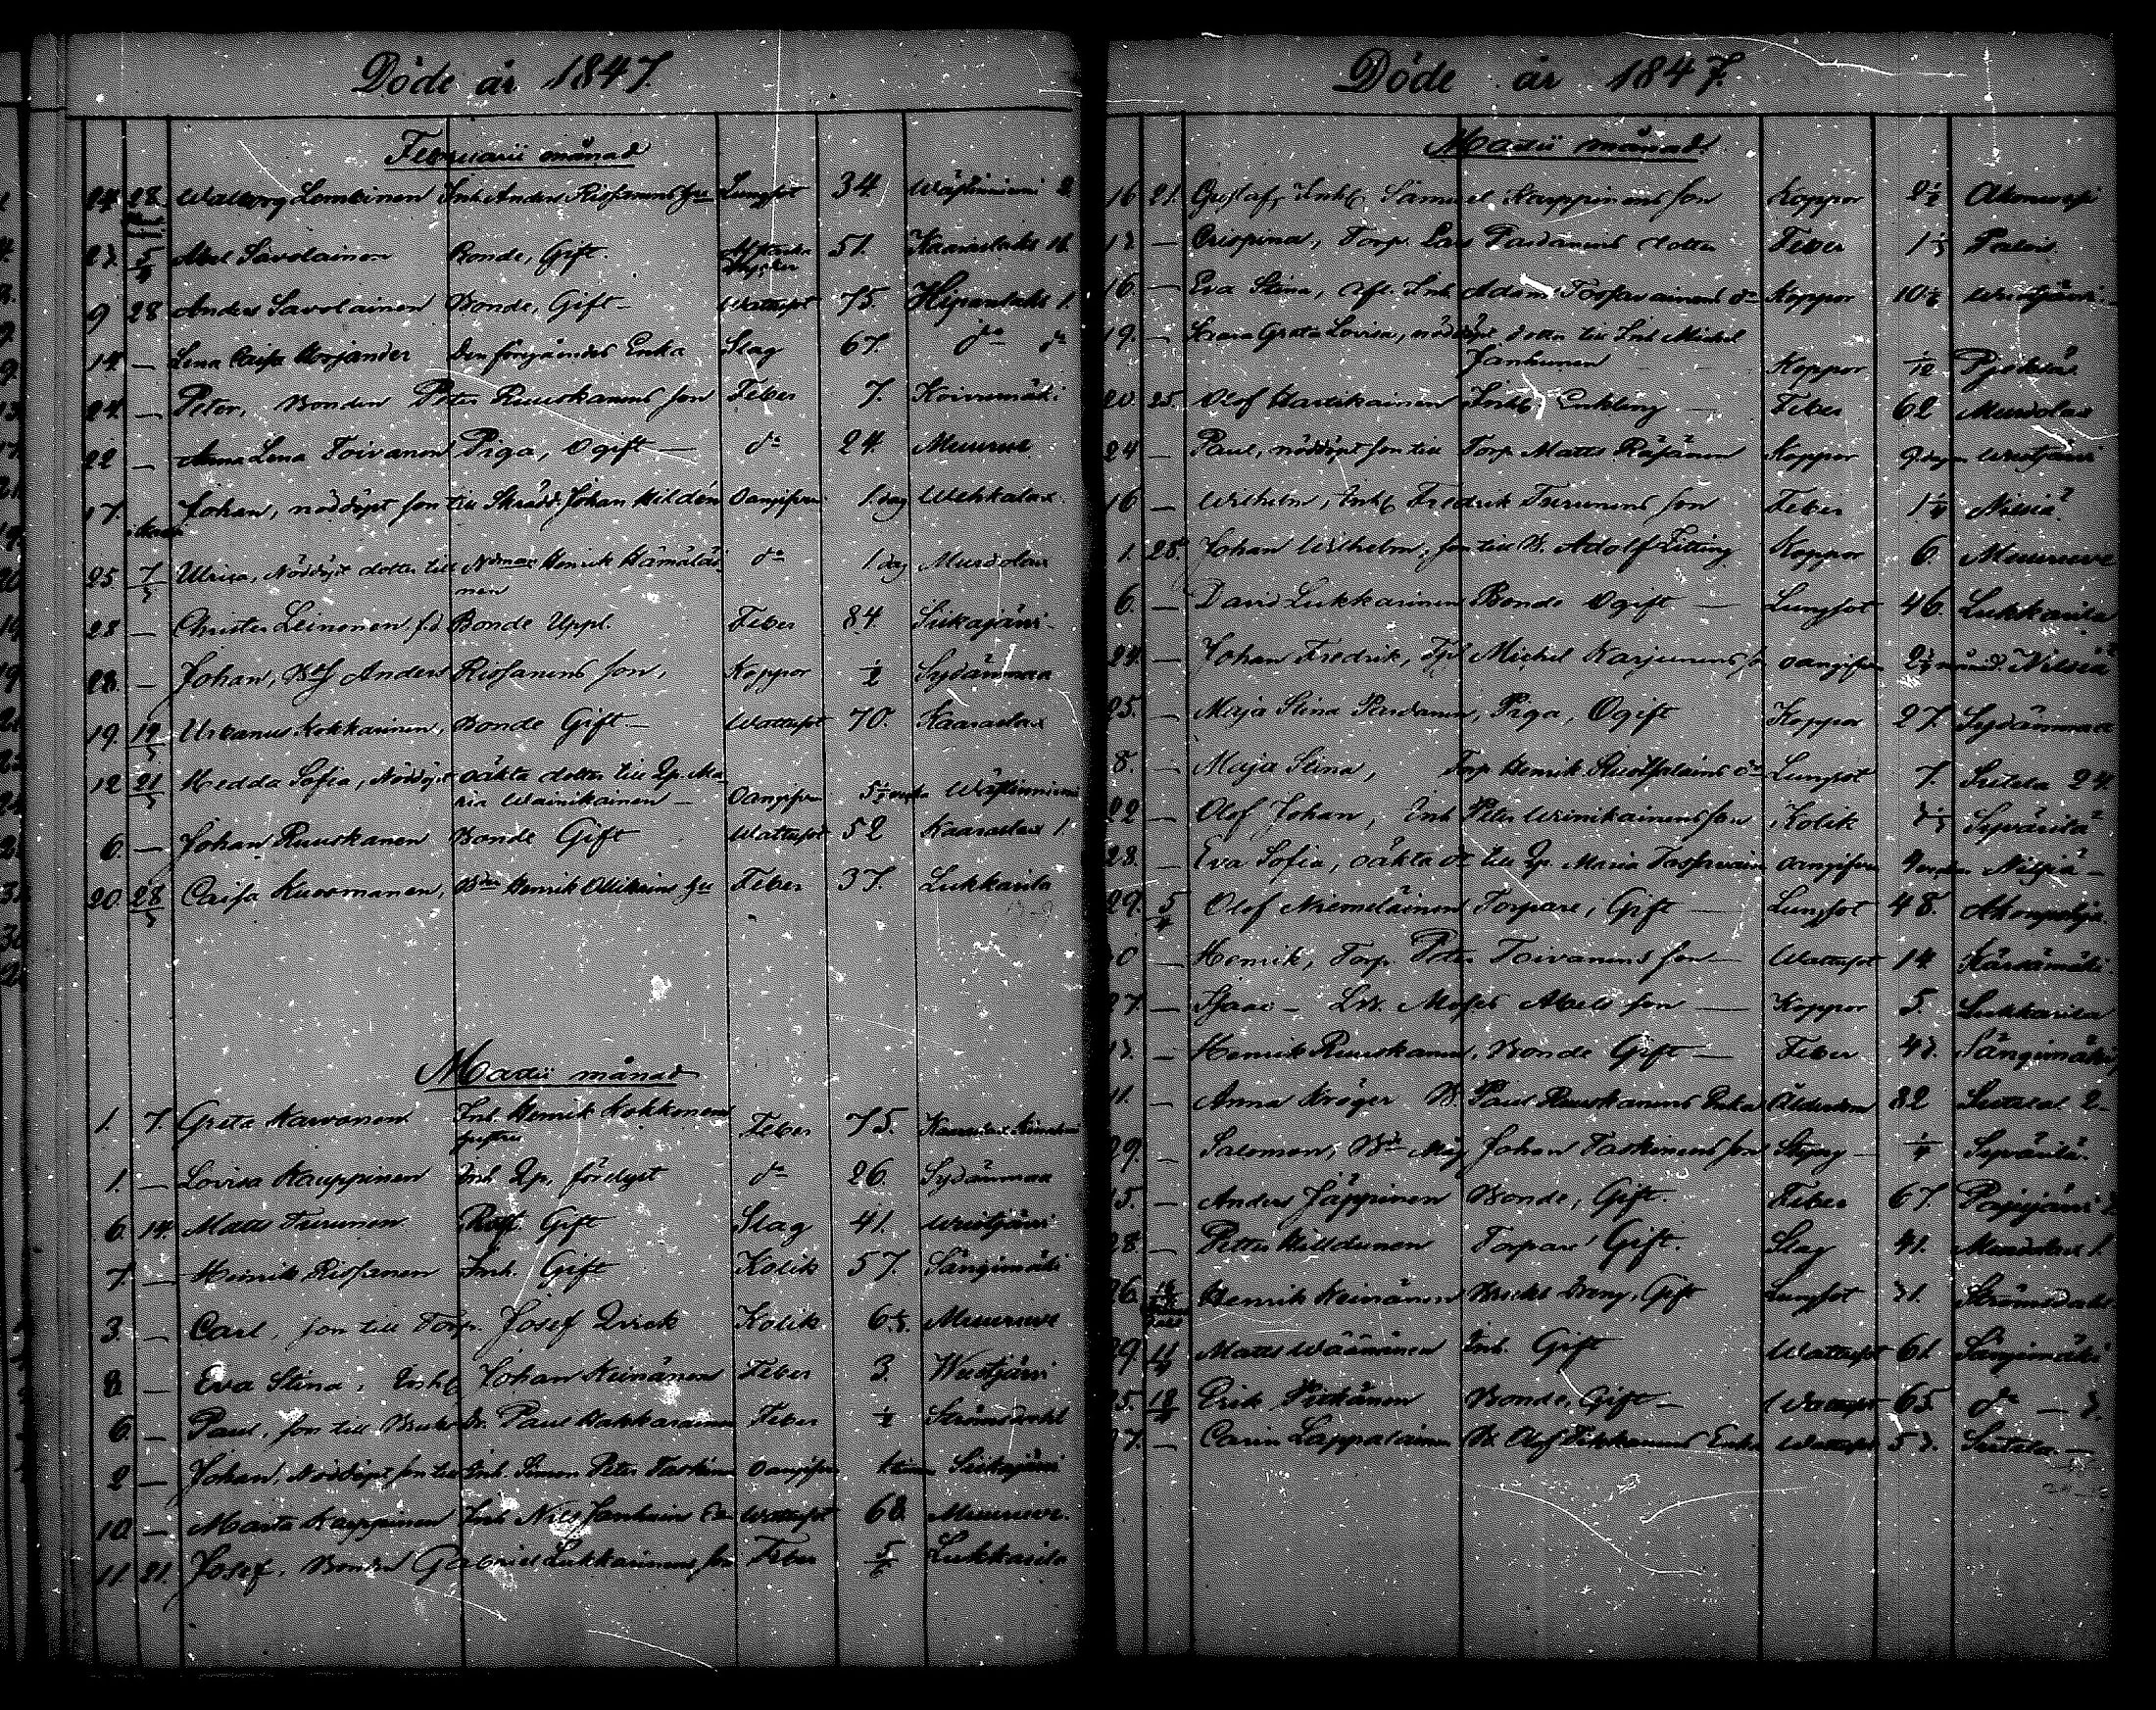 Döde år 1847.
Februarii månad
24 28 Walborg Lombinen Inh. Anders Rissanens hu Lungsot 34 Wästiniemi 2
27. 5/4 Abel Savolainen Bonde, Gift. 51. Kaaraslaks 16
9 28 Anders Savolainen Bonde, Gift – Wattusot 75. 1.
14. — Lena Caisa den föregåendes Enka Slag 67. do do
24. — Peter, Bonden Peter Ruuskanens son Feber 7. Koivumäki
22 — Anna Lena Toivanen Piga, Ogift — do 24. Muuruve
17. Johan, nöddöpt son till Skrädd. Johan Hildén Oangifven 1 dag Wehkalax.
25 7/3 Ulrica, Nöddöpt dotter till Henrik Hämäläi- do 1 dag Murdolax
nen
28 — Christer Leinonen f.d. Bonde Uppl. Feber 84. Siikajärvi
28. — Johan, Anders Rissanens son, Koppor 1/2 Sydänmaa
19. 14/3 Urbanus Kokkarinen, Bonde Gift — Wattusot 70. Kaaraslax
12 21/3 Hedda Sofia, Nöddöpt oäkta dotter till Qp. Ma-
ria Wainikainen — Oangifven Wästiniemi
6. — Johan Ruuskanen Bonde Gift Wattusot 52 Kaaraslax 1.
20. 28/3 Caisa Kuosmanen, Henrik Ollikains hu Feber 37. Lukkarila
Martii månad
1. 7. Greta Karvonen Inh. Henrik Kokkonens Feber 75. Kaaraslax
hustru
1. — Lovisa Kauppinen Inh. Qp, förelgst do 26. Sydänmaa
6. 14. Matts Turunen Gift Slag 41. Wuotjärvi
7. — Henrik Rissanen Inh. Gift Kolik 57. Sängimäki
3. — Carl, son till Torp. Josef Qvick Kolik Muuruve
8. — Eva Stina, Inh. Johan Keinänen Feber 3. Wuotjärvi
6. — Paul, son till Bruks Dr. Paul Hakkarainen Feber 1/2 Strömsdahl
2 — Johan, Nöddöpt son till Inh. Simon Peter Taskinen Oangifven Siikajärvi
10. — Marta Kauppinen Inh. Nils Janhuin Ea Wattusot 68. Muuruve.
11. 21. Josef, Bonden Gabriel Lukkarinens son Feber 5/6 Lukkarila
Döde år 1847.
Martii månad.
16 21. Gustaf, Inh. Samuel Kauppinens son Koppor 2 1/2
17 — Crispina, Torp. Lars Pardanens dotter Feber Palois
16. — Eva Stina, Inh. Adam Tossavainens dr Koppor Wuotjärvi
19. — Sara Greta Lovisa, nöddöpt dotter till Inh. Michel
Janhunen Koppor 1/12 Pjeksä
20. 25. Olof Hartikainen Inh. Enkling — Feber 62 Murdolax
24 — Paul, nöddöpt son till Torp. Matts Räsänen Koppor 9 dagar Wuotjärvi
16 — Wilhelm, Inh. Fredrik Turunens son Feber 1 1/4 Nilsiä
1. 28. Johan Wilhelm, son till B. Adolf Zitting Koppor 6. Muuruve
6. — David Lukkarinen Bonde Ogift — Lungsot 46. Lukkarila
24. — Johan Fredrik, Michel Karjunens son oangifven Nilsiä
25. — Maja Stina Pardanen, Piga, Ogift Koppor 27. Sydänmaa
8. — Maja Stina, Torp Henrik dr Lungsot 7. Sutela 24.
22 — Olof Johan, Inh Petter Winikainens son Kolik Syvärilä
28. — Eva Sofia, oäkta dr till Qp. Maria Tossavain oangifven Nilsiä —
29. 5/4 Olof Niemeläinen Torpare, Gift — Lungsot 48. Akonpohja
— Henrik, Torp. Peter Toivanens son — Wattusot 14. Kärsämäki
27. — Isaac – Moses Abels son — Koppor 5. Lukkarila
17. — Henrik Ruuskanen, Bonde Gift — Feber 47. Sängimäki
11. — Anna Kröger B. Paul Ruuskanens Enka Ålderdom 82 Sutela 2.
29. — Salomon, Johan Taskinens son 1/4 Syvärilä
15. — Anders Jäppinen Bonde, Gift. Feber 67. Pajujärvi 2
28. — Petter Hilldunen Torpare Gift. Slag 41. Murdolax 1.
26. Henrik Keinänen Bruks Dräng, Gift Lungsot 71. Strömsdahl
29 11/4 Matts Wäänänen Inh. Gift Wattusot 61. Sängimäki
25. 18/4 Erik Pitkänen Bonde, Gift — Wattusot 65. do — 7.
27. — Carin Lappalainen B. Olof Tikkanens Enka Wattusot 57. Sutela —